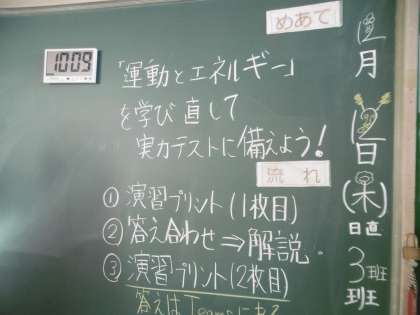 めあて
10:09
「運動とエネルギー」
を学び直して
実力テストに備えよう!
流れ
① 演習プリント(1枚目)
② 答え合わせ⇒解説
③ 演習プリント(2枚目)
答えはTeamsにある
月
日
(木)
日直
3班
班